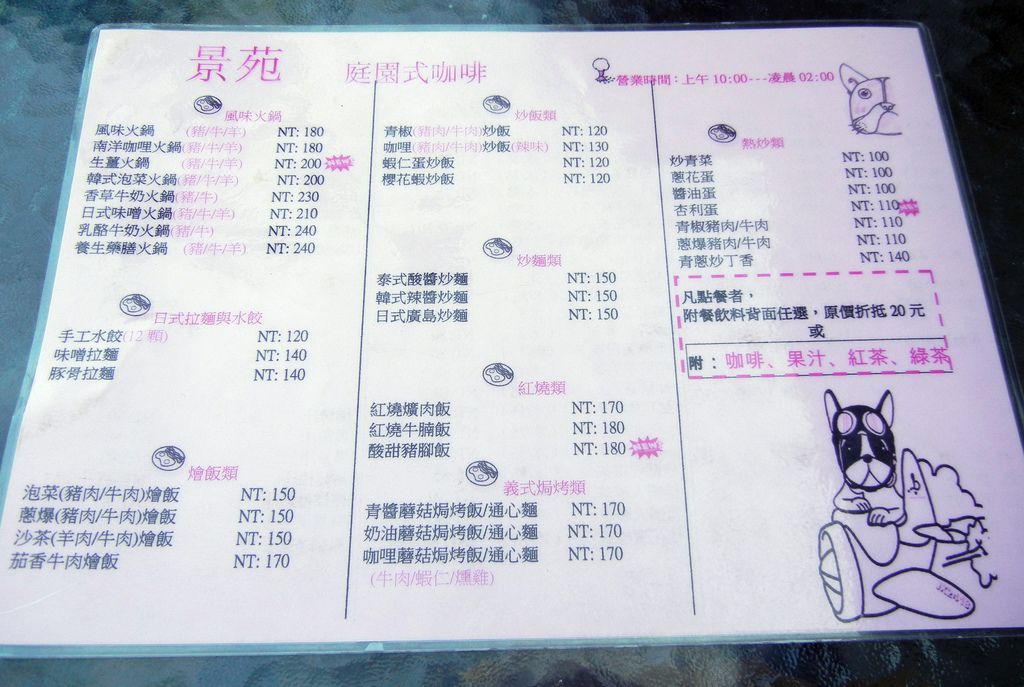 景苑 庭園式咖啡
營業時間：上午 10:00---凌晨 02:00
風味火鍋
風味火鍋(豬/牛/羊) NT: 180
南洋咖哩火鍋(豬/牛/羊) NT: 180
生薑火鍋 (豬/牛/羊) NT: 200
韓式泡菜火鍋(豬/牛/羊) NT: 200
香草牛奶火鍋(豬/牛) NT: 230
日式味噌火鍋(豬/牛/羊) NT: 210
乳酪牛奶火鍋(豬/牛) NT: 240
養生藥膳火鍋 (豬/牛/羊) NT: 240
日式拉麵與水餃
手工水餃(12 顆) NT: 120
味噌拉麵 NT: 140
豚骨拉麵 NT: 140
燴飯類
泡菜(豬肉/牛肉)燴飯 NT: 150
蔥爆(豬肉/牛肉)燴飯 NT: 150
沙茶(羊肉/牛肉)燴飯 NT: 150
茄香牛肉燴飯 NT: 170
炒飯類
青椒(豬肉/牛肉)炒飯 NT: 120
咖哩(豬肉/牛肉)炒飯(辣味) NT: 130
蝦仁蛋炒飯 NT: 120
櫻花蝦炒飯 NT: 120
炒麵類
泰式酸醬炒麵 NT: 150
韓式辣醬炒麵 NT: 150
日式廣島炒麵 NT: 150
紅燒類
紅燒爌肉飯 NT: 170
紅燒牛腩飯 NT: 180
酸甜豬腳飯 NT: 180
義式焗烤類
青醬蘑菇焗烤飯/通心麵 NT: 170
奶油蘑菇焗烤飯/通心麵 NT: 170
咖哩蘑菇焗烤飯/通心麵 NT: 170
(牛肉/蝦仁/燻雞)
熱炒類
炒青菜 NT: 100
蔥花蛋 NT: 100
醬油蛋 NT: 100
杏利蛋 NT: 110
青椒豬肉/牛肉 NT: 110
蔥爆豬肉/牛肉 NT: 110
青蔥炒丁香 NT: 140
凡點餐者，
附餐飲料背面任選，原價折抵 20 元
或
附：咖啡、果汁、紅茶、綠茶